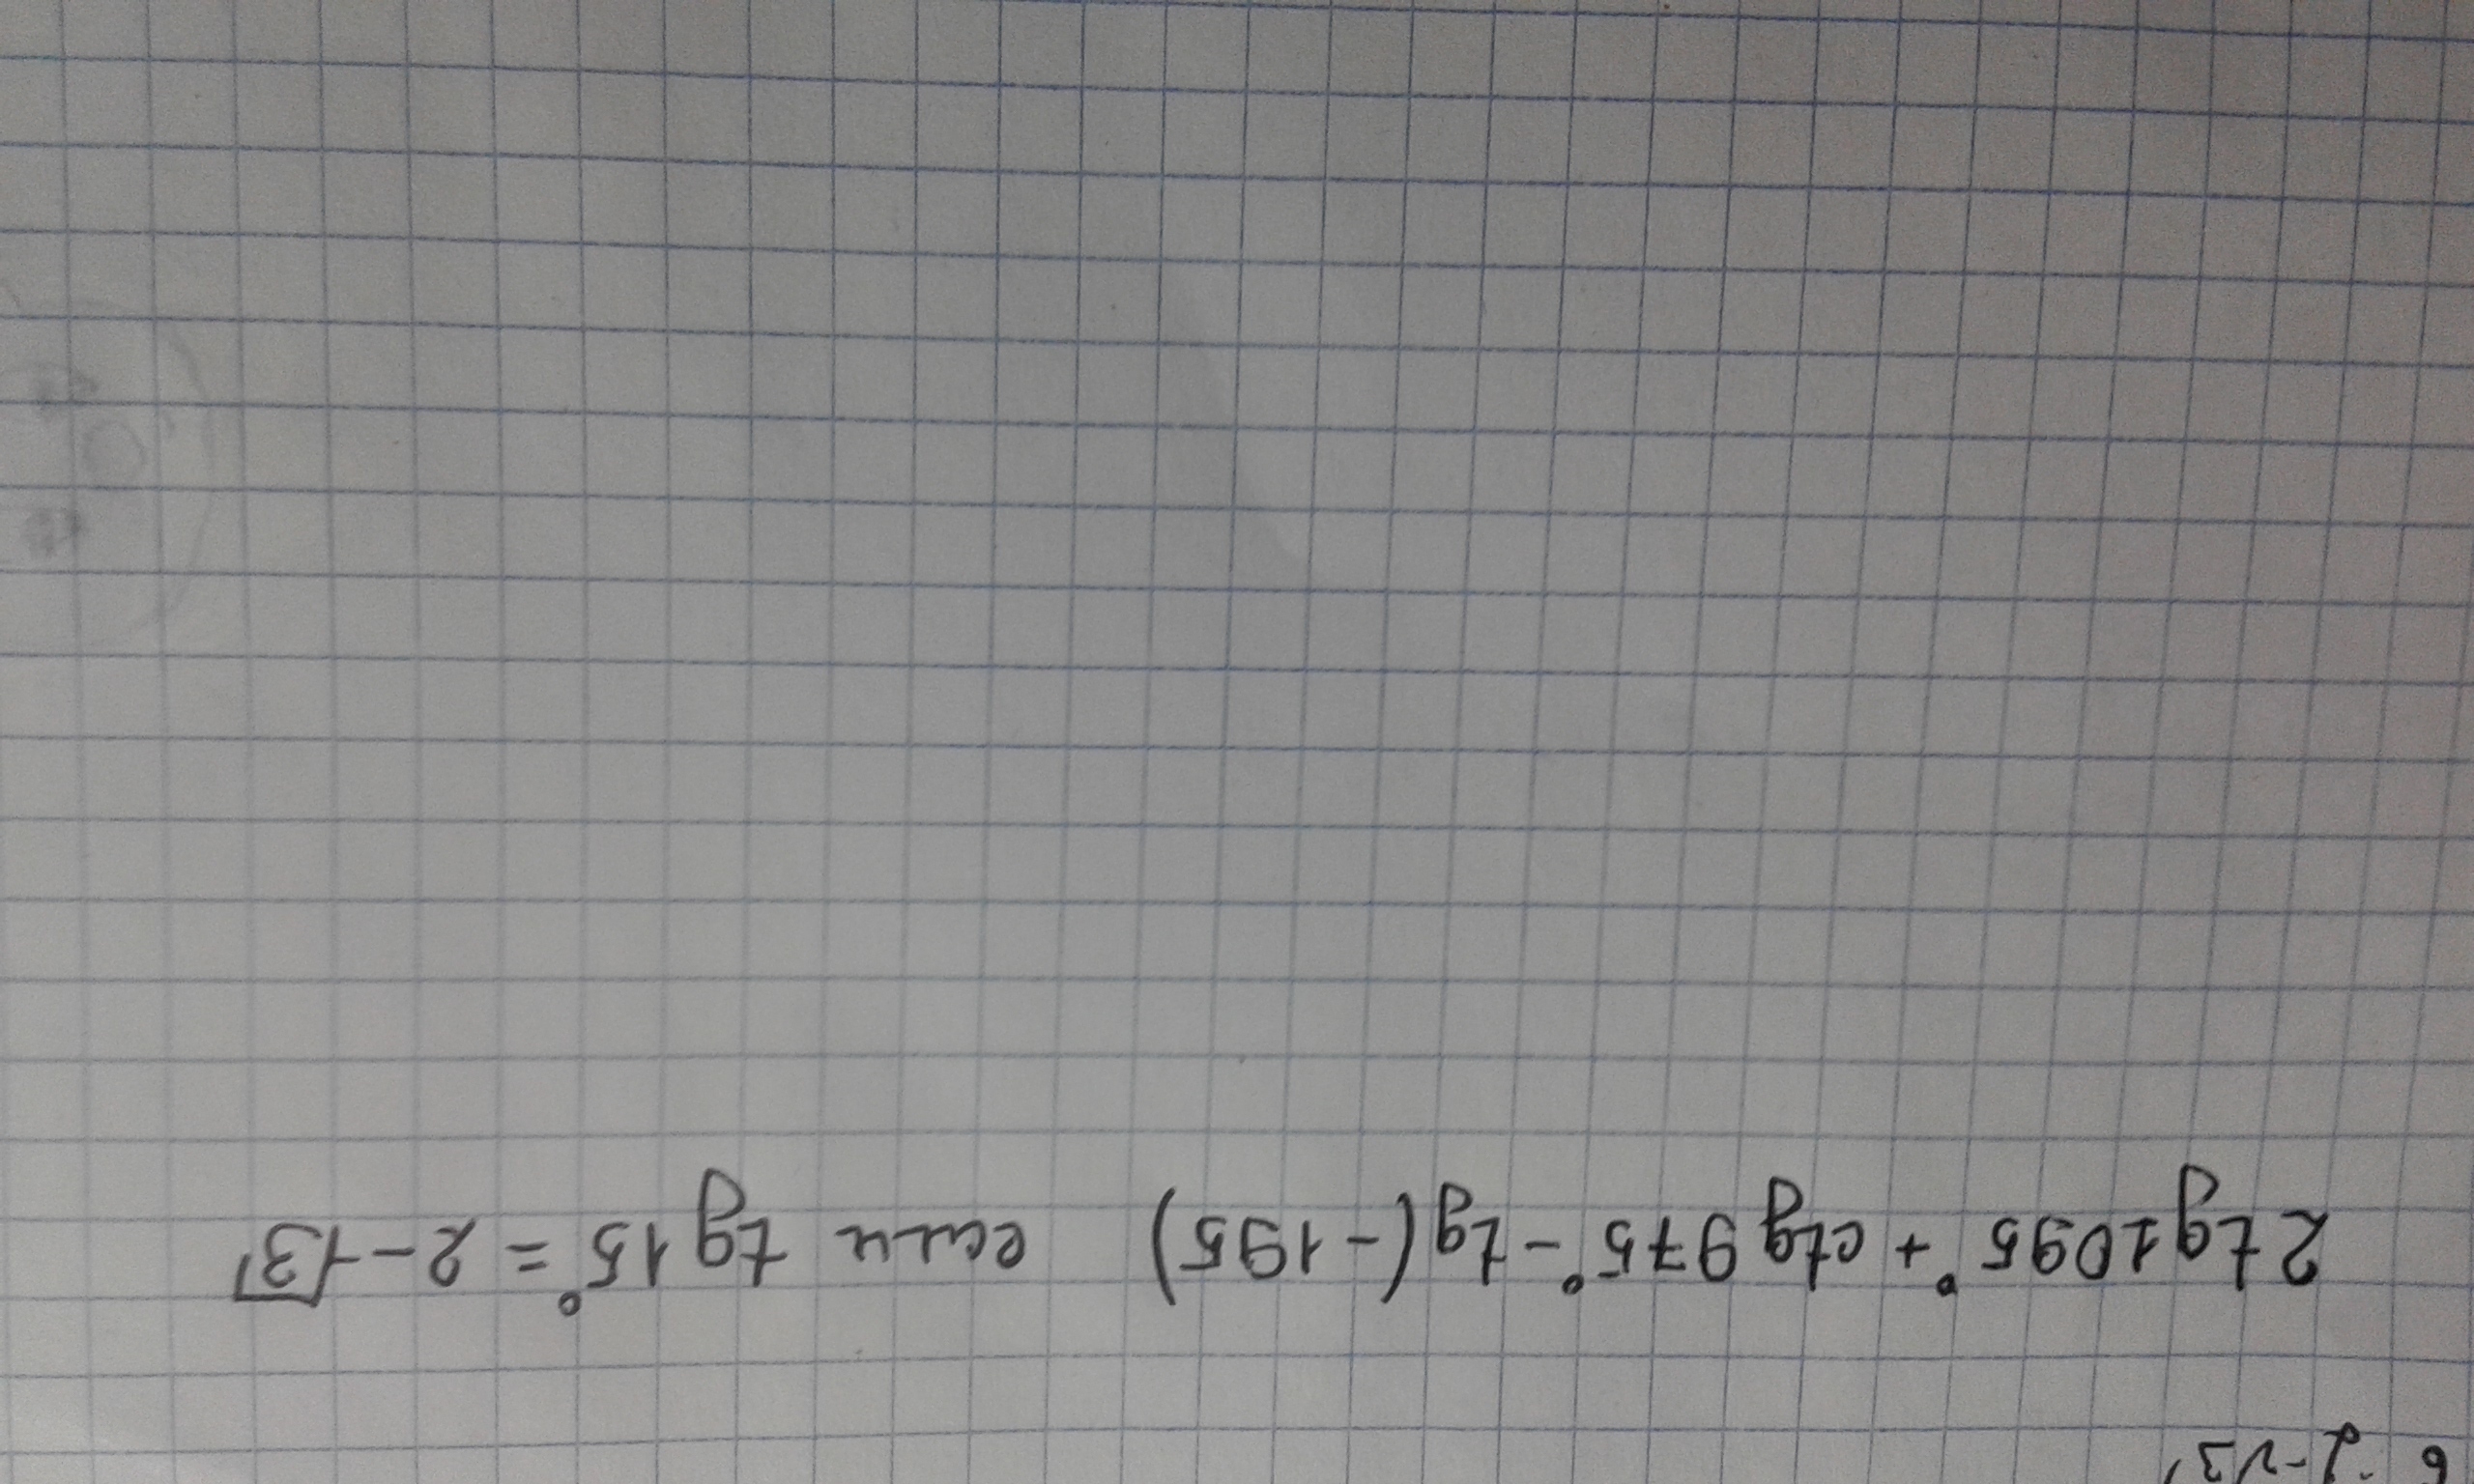 6 2-√3
2 tg 1095° + ctg 975° - tg (-195) если tg 15° = 2 - √3